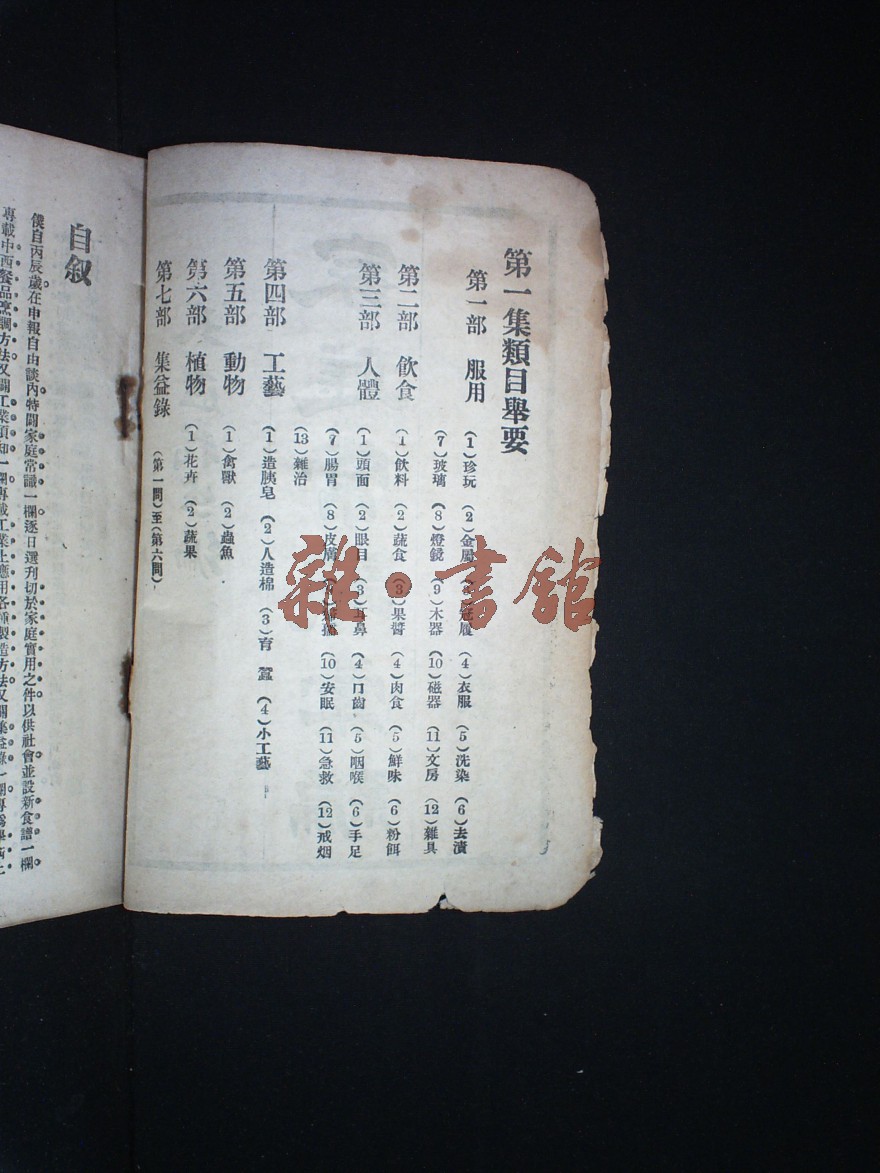 第一集類目舉要
第一部 服用 (1)珍玩 (2)金屬 冠履 (4)衣服 (5)洗染 (6)去漬
(7)玻璃 (8)燈鏡 (9)木器 (10)磁器 (11)文房 (12)雜具
第二部 飲食 (1)飲料 (2)蔬食 (3)果醬 (4)肉食 (5)鮮味 (6)粉餌
第三部 人體 (1)頭面 (2)眼目 (3)耳鼻 (4)口齒 (5)咽喉 (6)手足
(7)腸胃 (8)皮膚 (10)安眠 (11)急救 (12)戒烟
(13)雜治
第四部 工藝 (1)造胰皂 (2)人造棉 (3)育蠶 (4)小工藝
第五部 動物 (1)禽獸 (2)蟲魚
第六部 植物 (1)花卉 (2)蔬果
第七部 集益錄 (第一問)至(第六問)
自叙
僕自丙辰歲在申報自由談內特闢家庭常識一欄逐日選刋切於家庭實用之件以供社會並設新食譜一欄
專載中西餐品烹調方法又闢工業須知一欄專載工業上應用各種製造方法又闢集益錄一欄專爲
雜·書館